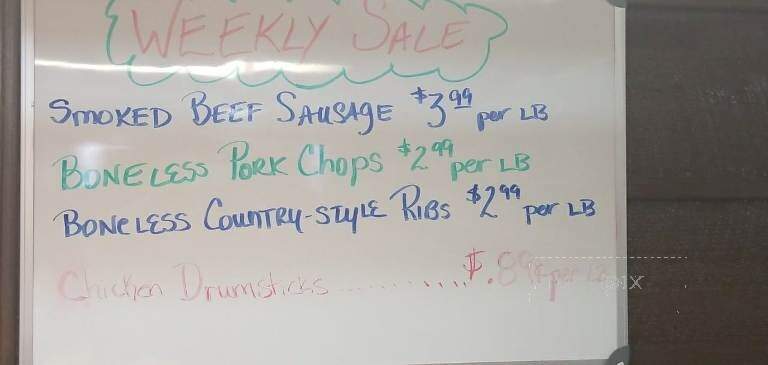 WEEKLY SALE
SMOKED BEEF SAUSAGE $3.99 per LB
BONELESS PORK Chops $2.99 per LB
BONELESS COUNTRY-STYLE RIBS $2.99 per LB
Chicken Drumsticks ........... $.89¢ per LB